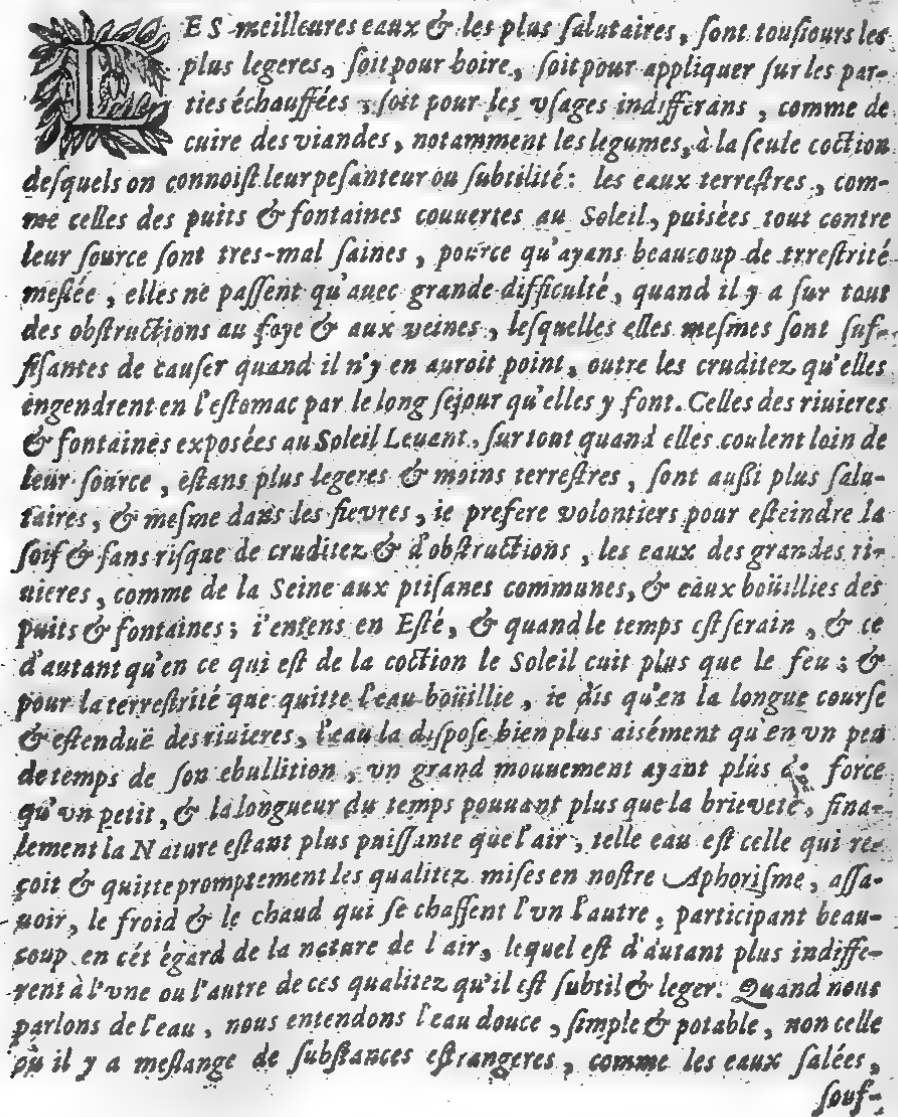 LES meilleures eaux & les plus ſalutaires, ſont touſiours les
plus legeres, ſoit pour boire, ſoit pour appliquer ſur les par-
ties échauffées, ſoit pour les vſages indifferans, comme de
cuire des viandes, notamment les legumes, à la ſeule coction
deſquels on connoiſt leur peſanteur ou ſubtilité: les eaux terreſtres, com-
me celles des puits & fontaines couuertes au Soleil, puisées tout contre
leur ſource ſont tres-mal ſaines, pource qu'ayans beaucoup de trreſtrité
meſlée, elles ne paſſent qu'auec grande difficulté, quand il y a ſur tout
des obſtructions au foye & aux veines, leſquelles elles meſmes ſont ſuf-
fiſantes de cauſer quand il n'y en auroit point, outre les cruditez qu'elles
engendrent en l'eſtomac par le long ſejour qu'elles y font. Celles des riuieres
& fontaines exposées au Soleil Leuant, ſur tout quand elles coulent loin de
leur ſource, eſtans plus legeres & moins terreſtres, ſont außi plus ſalu-
taires, & meſme dans les fievres, ie prefere volontiers pour eſteindre la
ſoif & ſans riſque de cruditez & d'obſtructions, les eaux des grandes ri-
uieres, comme de la Seine aux ptiſanes communes, & eaux boüillies des
puits & fontaines; i'entens en Eſté, & quand le temps eſt ſerain, & ce
d'autant qu'en ce qui eſt de la coction le Soleil cuit plus que le feu; &
pour la terreſtrité que quitte l'eau boüillie, ie dis qu'en la longue courſe
& eſtenduë des riuieres, l'eau la dépoſe bien plus aisément qu'en vn peu
de temps de ſon ebullition, vn grand mouuement ayant plus de force
qu'vn petit, & la longueur du temps pouuant plus que la brieveté, fina-
lement la Nature eſtant plus puiſſante que l'air, telle eau eſt celle qui re-
çoit & quitte promptement les qualitez miſes en noſtre Aphoriſme, aſſa-
uoir, le froid & le chaud qui ſe chaſſent l'vn l'autre, participant beau-
coup en cét égard de la nature de l'air, lequel eſt d'autant plus indiffe-
rent à l'vne ou l'autre de ces qualitez qu'il eſt ſubtil & leger. Quand nous
parlons de l'eau, nous entendons l'eau douce, ſimple & potable, non celle
où il y a meſlange de ſubſtances eſtrangeres, comme les eaux ſalées,
ſouf-